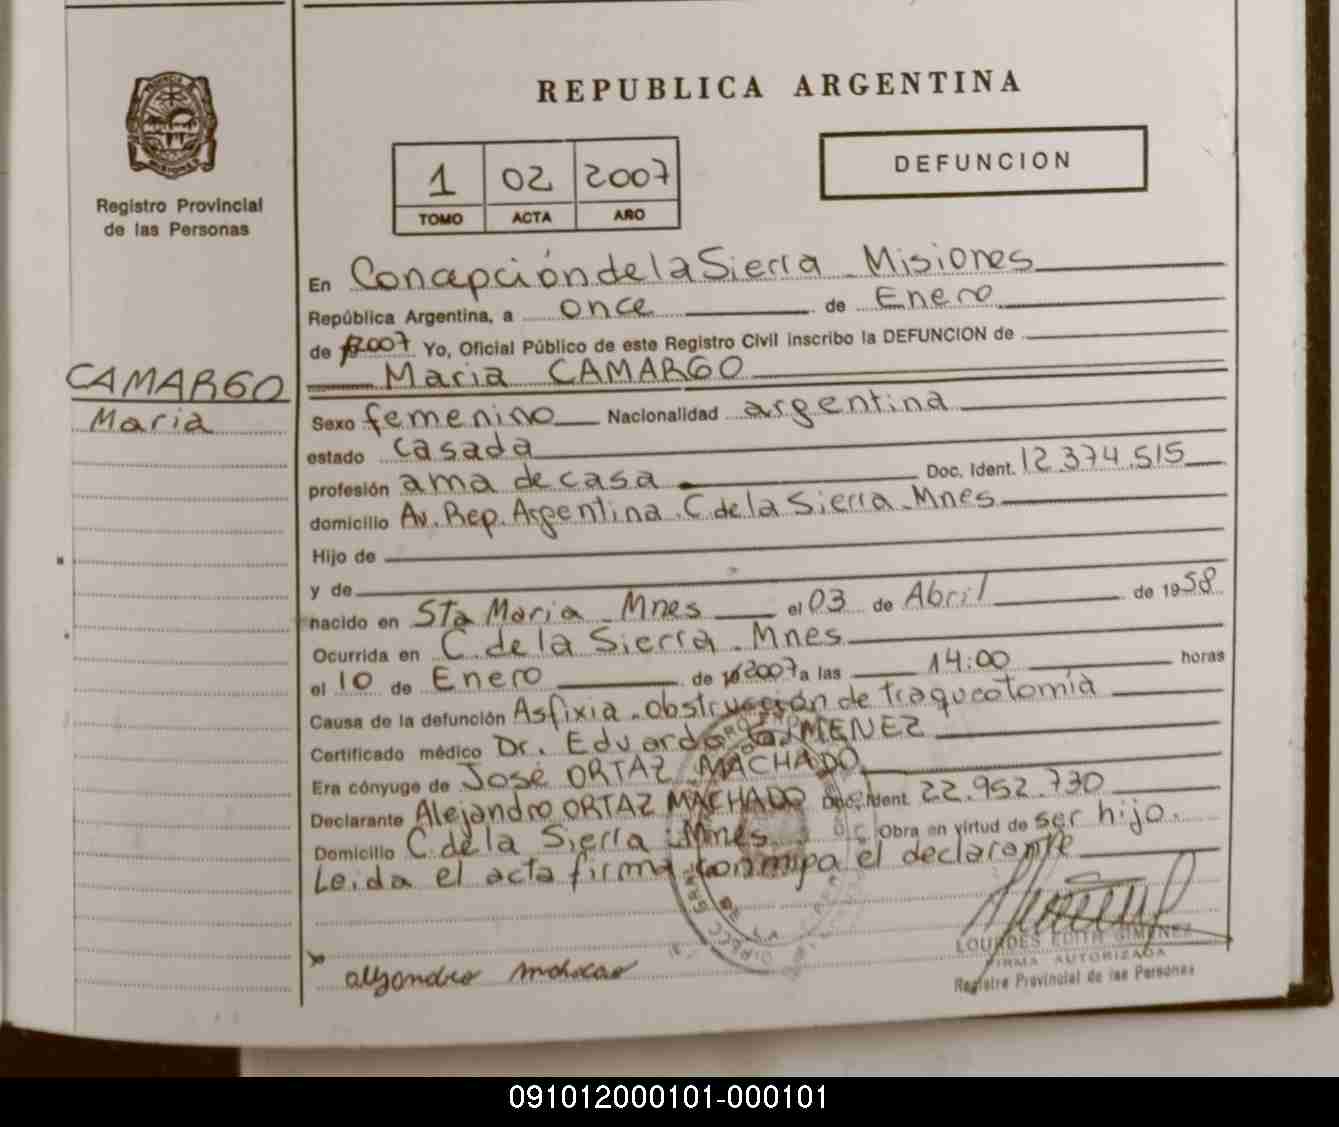 REPUBLICA ARGENTINA
DEFUNCION
1 02 2007
TOMO ACTA AÑO
Registro Provincial
de las Personas
CAMARGO
Maria
En Concepción de la Sierra - Misiones
República Argentina, a once de Enero
de 2007 Yo, Oficial Público de este Registro Civil inscribo la DEFUNCION de
Maria CAMARGO
Sexo femenino Nacionalidad argentina
estado casada
profesión ama de casa Doc. Ident. 12.374.515
domicilio Av. Rep. Argentina. C de la Sierra - Mnes
Hijo de
y de
nacido en Sta Maria - Mnes el 03 de Abril de 1958
Ocurrida en C. de la Sierra - Mnes
el 10 de Enero de 2007 a las 14:00 horas
Causa de la defunción Asfixia - obstrucción de traqueotomía
Certificado médico Dr. Eduardo GIMENEZ
Era cónyuge de José ORTAZ MACHADO
Declarante Alejandro ORTAZ MACHADO Doc. Ident 22.952.730
Domicilio C. de la Sierra - Mnes Obra en virtud de ser hijo.
Leída el acta firma conmigo el declarante
LOURDES EDITH GIMENEZ
FIRMA AUTORIZADA
Registro Provincial de las Personas
091012000101-000101